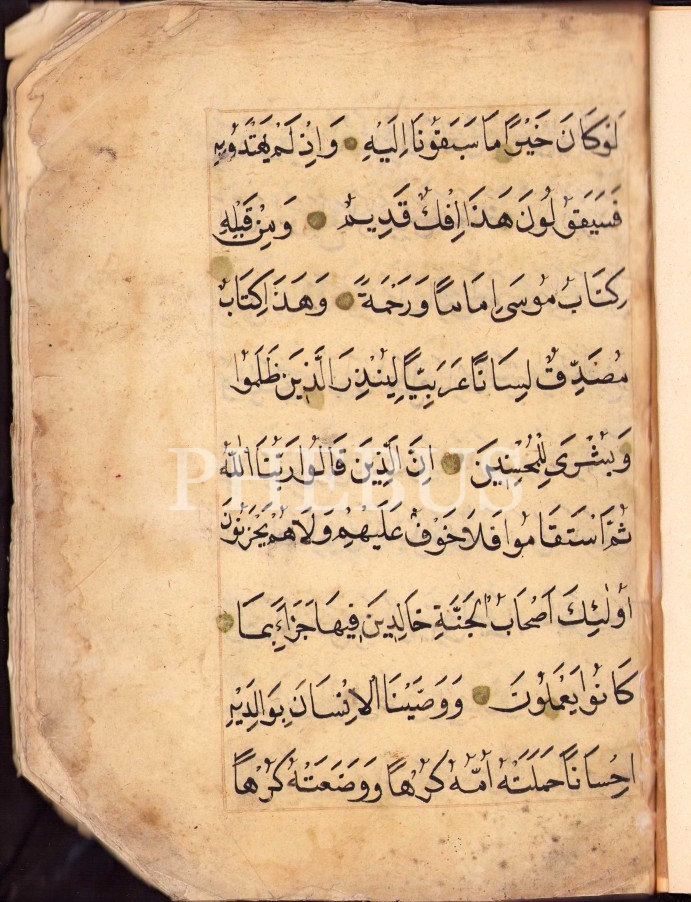 لَوْ كَانَ خَيْرًا مَا سَبَقُونَا اِلَيْهِ وَاِذْ لَمْ يَهْتَدُوا بِهِ
فَسَيَقُولُونَ هَذَا اِفْكٌ قَدِيمٌ وَمِنْ قَبْلِهِ
كِتَابُ مُوسَى اِمَامًا وَرَحْمَةً وَهَذَا كِتَابٌ
مُصَدِّقٌ لِسَانًا عَرَبِيًّا لِيُنْذِرَ الَّذِينَ ظَلَمُوا
وَبُشْرَى لِلْمُحْسِنِينَ اِنَّ الَّذِينَ قَالُوا رَبُّنَا اللّٰهُ
PHEBUS
ثُمَّ اسْتَقَامُوا فَلَا خَوْفٌ عَلَيْهِمْ وَلَا هُمْ يَحْزَنُونَ
اُولٰئِكَ اَصْحَابُ الْجَنَّةِ خَالِدِينَ فِيهَا جَزَاءً بِمَا
كَانُوا يَعْمَلُونَ وَوَصَّيْنَا الْاِنْسَانَ بِوَالِدَيْهِ
اِحْسَانًا حَمَلَتْهُ اُمُّهُ كُرْهًا وَوَضَعَتْهُ كُرْهًا